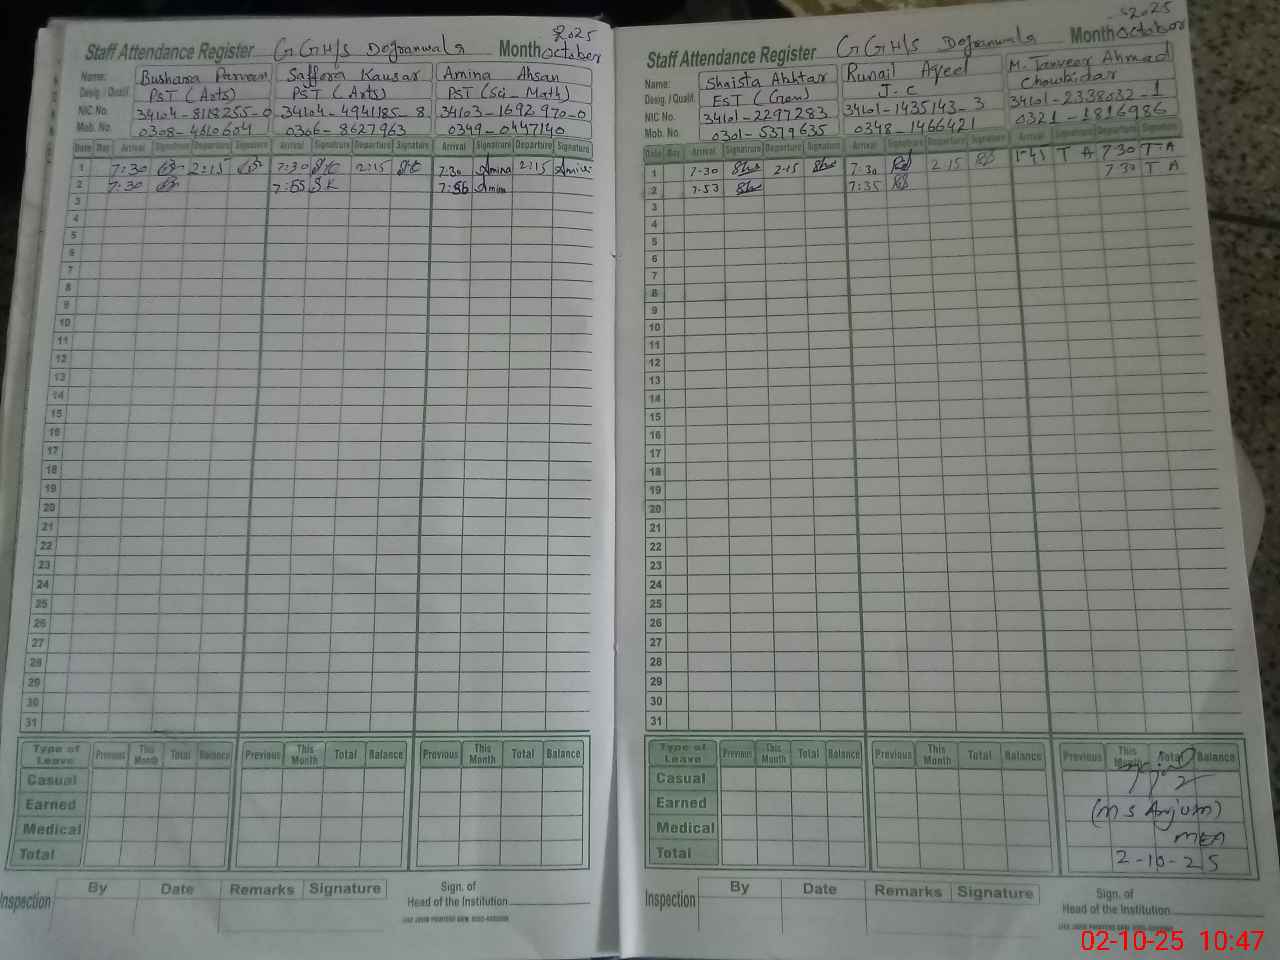 2025
Staff Attendance Register GGH/S Dogranwala Month October
Name: Bushara Parveen Saffora Kausar Amina Ahsan
Desig. / Qualif. PST (Arts) PST (Arts) PST (Sci-Math)
NIC No. 34104-8118255-0 34104-4941185-8 34103-1692970-0
Mob. No. 0308-4610604 0306-8627963 0349-0447140
Date Day Arrival Signature Departure Signature Arrival Signature Departure Signature Arrival Signature Departure Signature
1 7:30 2:15 7:30 SK 2:15 SK 7:30 Amina 2:15 Amina
2 7:30 7:55 SK 7:56 Amin
3
4
5
6
7
8
9
10
11
12
13
14
15
16
17
18
19
20
21
22
23
24
25
26
27
28
29
30
31
Type of Leave Previous This Month Total Balance Previous This Month Total Balance Previous This Month Total Balance
Casual
Earned
Medical
Total
Inspection By Date Remarks Signature Sign. of
Head of the Institution
2025
Staff Attendance Register GGH/S Dogranwala Month October
Name: Shaista Akhtar M. Tanveer Ahmad
Desig. / Qualif. EST (Gen) J.C Chowkidar
NIC No. 34101-2297283 34101-1435143-3 34101-2338032-1
Mob. No. 0301-5379635 0348-1466421 0321-1816986
Date Day Arrival Signature Departure Signature Arrival Signature Departure Signature Arrival Signature Departure Signature
1 7:30 2:15 7:30 2:15 1:45 T A 7:30 T-A
2 7:53 7:35 7:30 T A
3
4
5
6
7
8
9
10
11
12
13
14
15
16
17
18
19
20
21
22
23
24
25
26
27
28
29
30
31
Type of Leave Previous This Month Total Balance Previous This Month Total Balance Previous This Month Total Balance
Casual
Earned (M S Anjum)
Medical MEA
Total 2-10-25
Inspection By Date Remarks Signature Sign. of
Head of the Institution
02-10-25 10:47